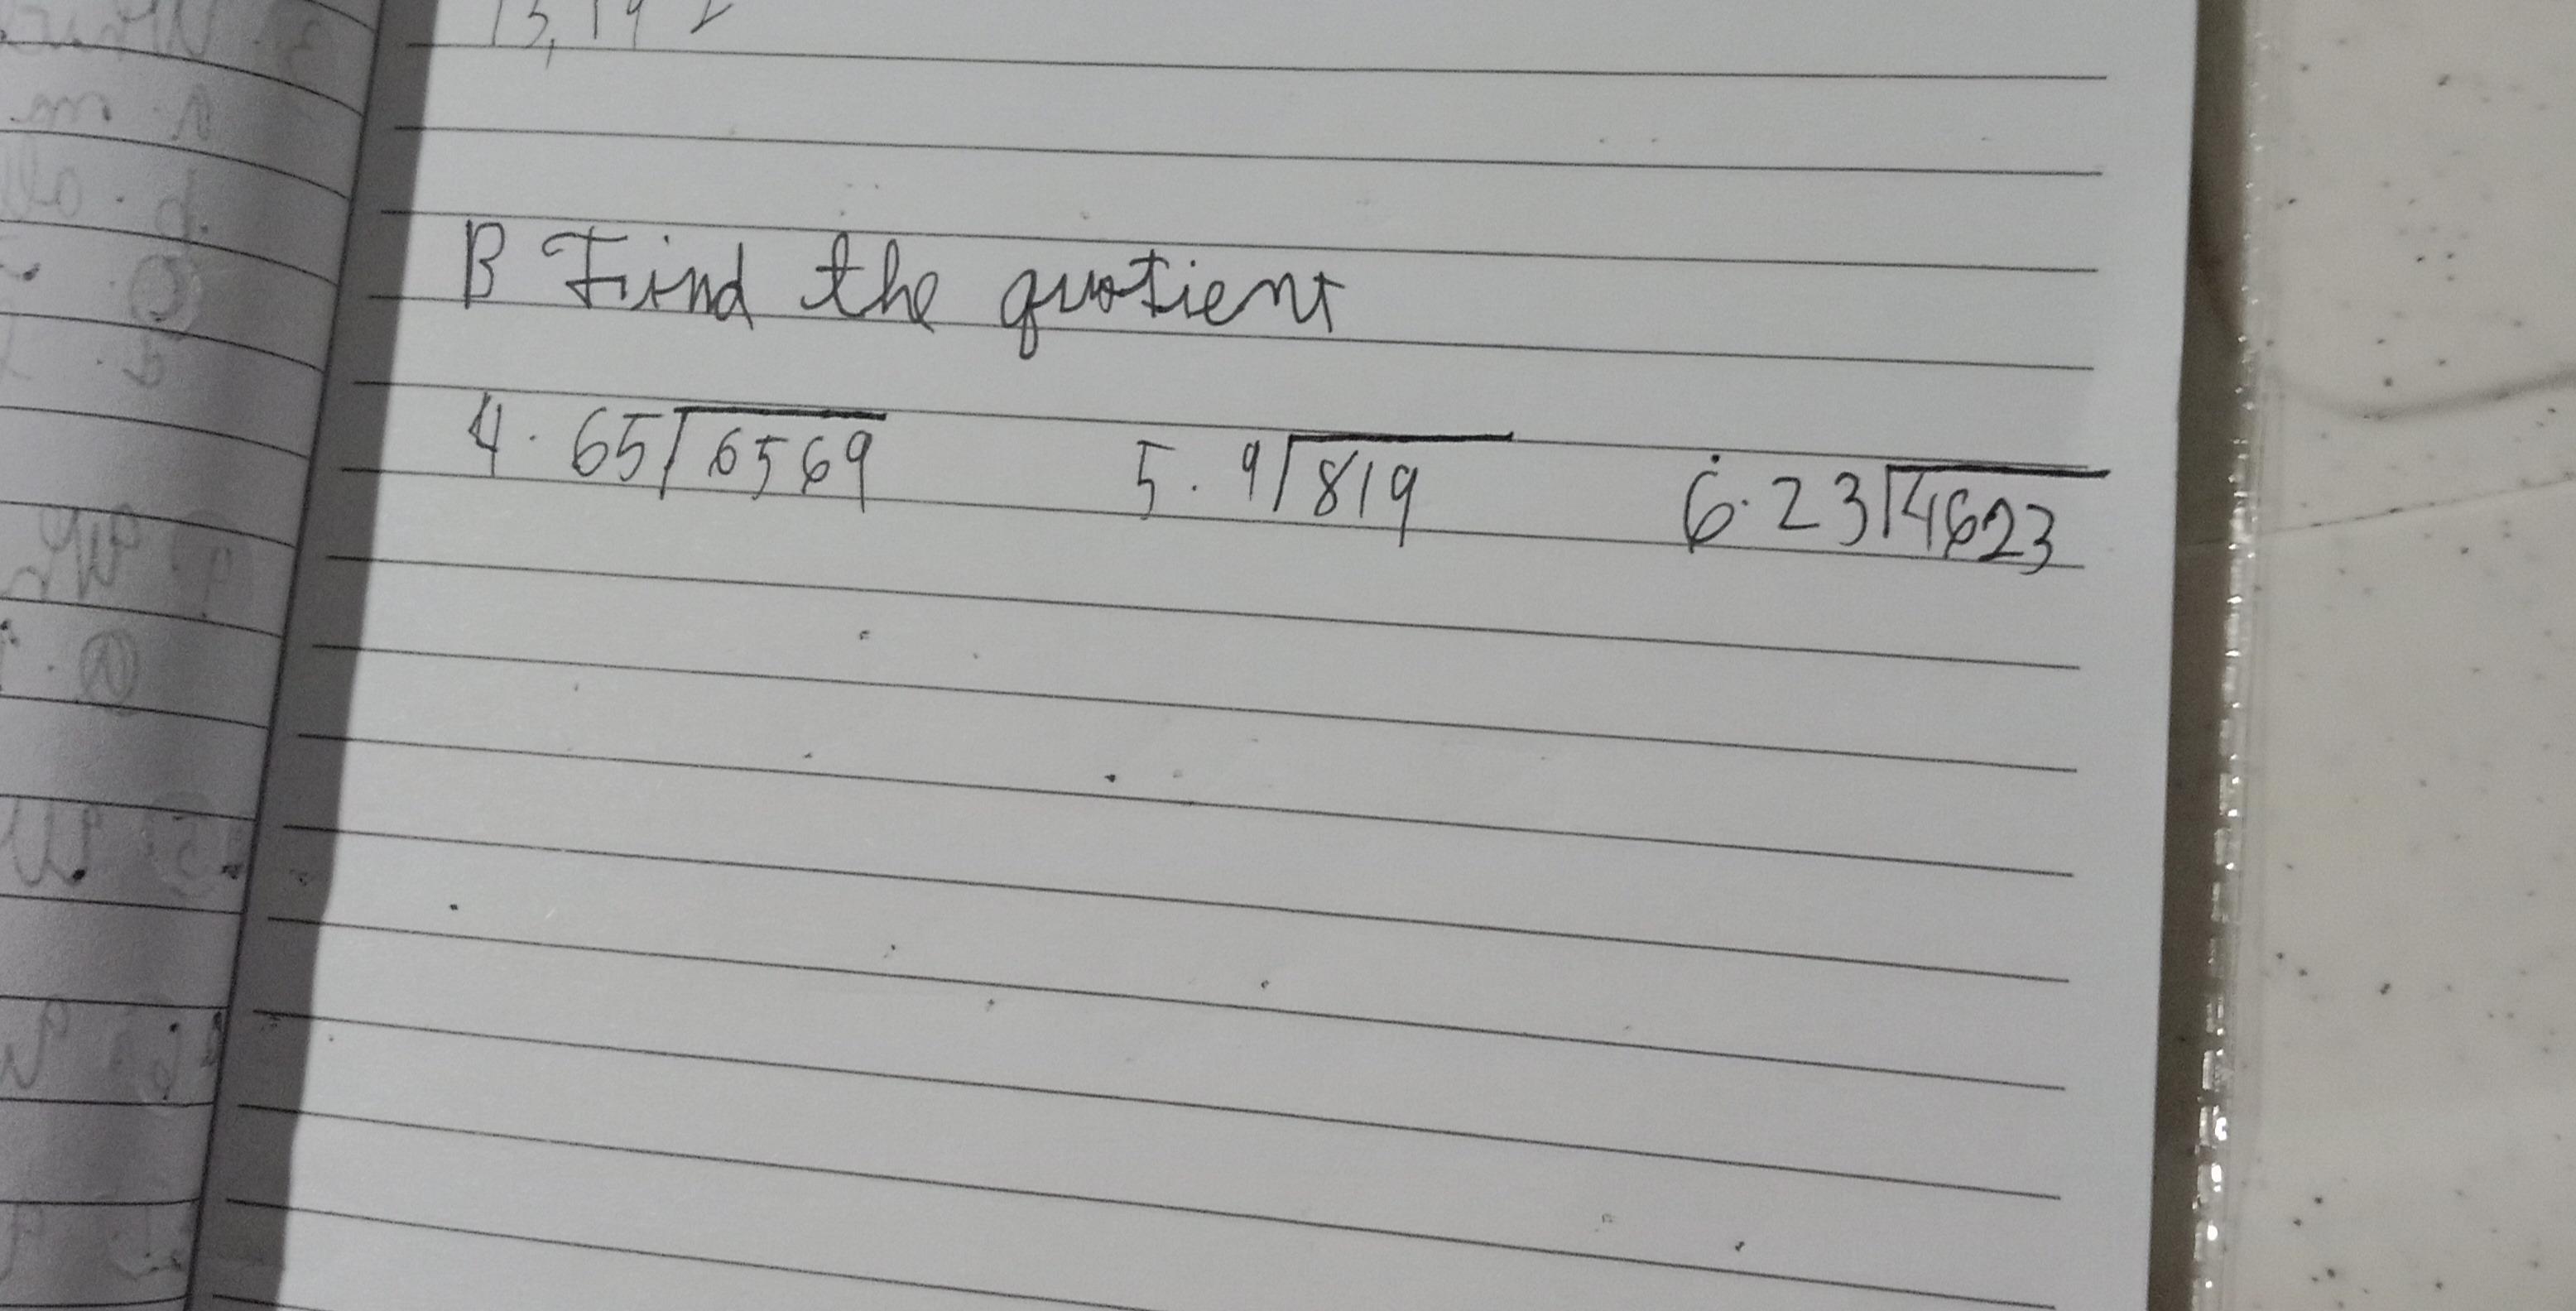 13, 19
B Find the quotient
4. 65⟌6569 5. 9⟌819 6. 23⟌4623